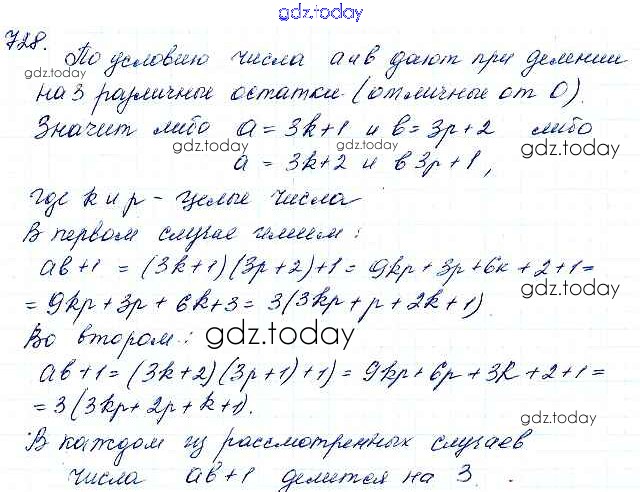 gdz.today
728.
По условию числа a и b дают при делении
gdz.today
на 3 различные остатки (отличные от 0).
Значит либо a = 3k+1 и b = 3p+2 либо
gdz.today gdz.today gdz.today
a = 3k+2 и b 3p+1,
где k и p - целые числа
В первом случае имеем:
ab+1 = (3k+1)(3p+2)+1 = 9kp+3p+6k+2+1=
= 9kp+3p+6k+3 = 3(3kp+p+2k+1)
gdz.today
Во втором:
gdz.today
ab+1 = (3k+2)(3p+1)+1) = 9kp+6p+3k+2+1=
= 3(3kp+2p+k+1).
gdz.today
В каждом из рассмотренных случаев
числа ab+1 делится на 3.
gdz.today gdz.today